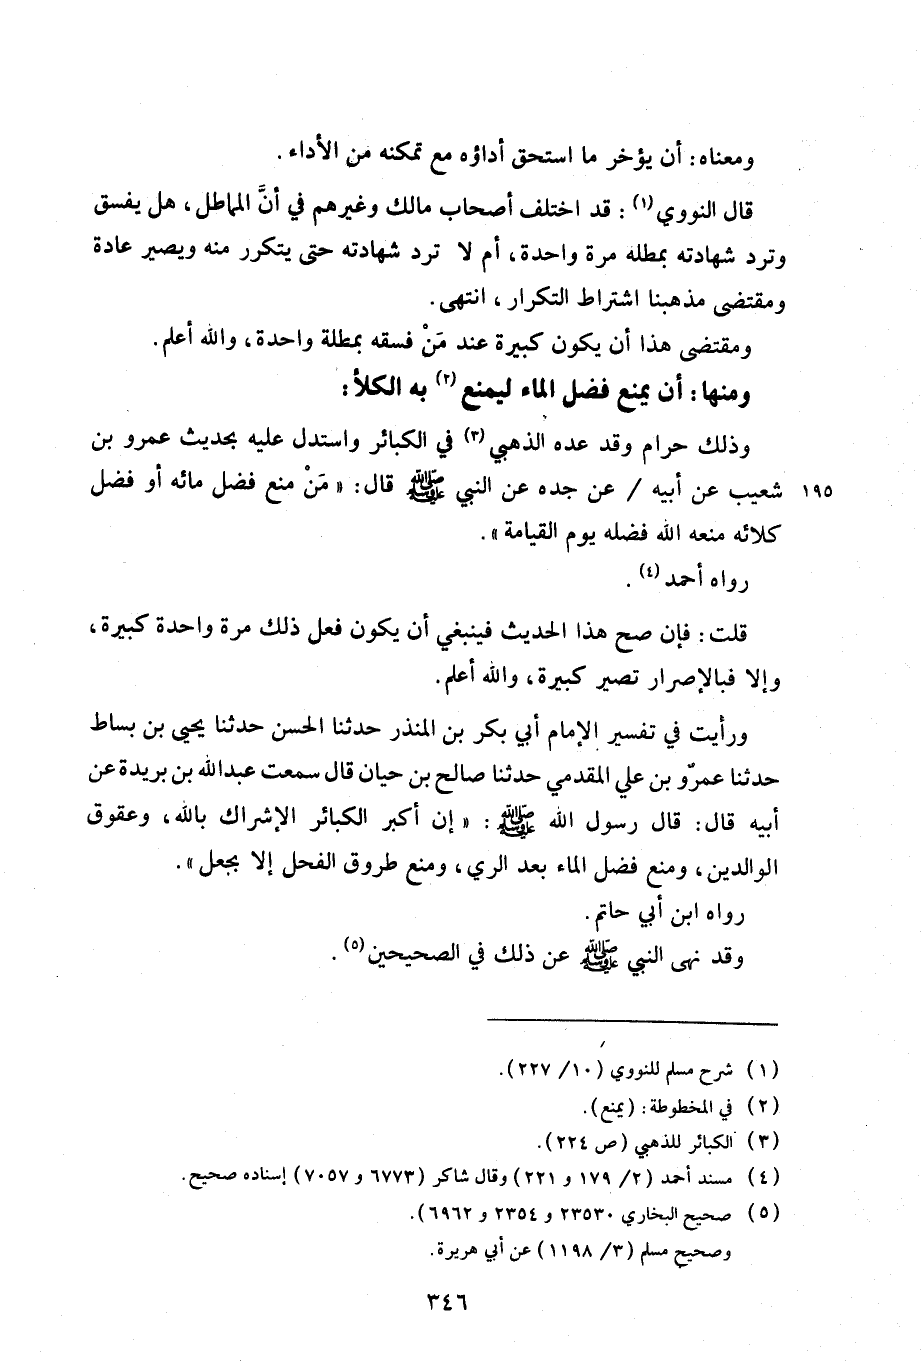 ومعناه: أن يؤخر ما استحق أداؤه مع تمكنه من الأداء.
قال النووي(١): قد اختلف أصحاب مالك وغيرهم في أنَّ المماطل، هل يفسق
وترد شهادته بمطله مرة واحدة، أم لا ترد شهادته حتى يتكرر منه ويصير عادة
ومقتضى مذهبنا اشتراط التكرار، انتهى.
ومقتضى هذا أن يكون كبيرة عند مَنْ فسقه بمطلة واحدة، والله أعلم.
ومنها: أن يمنع فضل الماء ليمنع(٢) به الكلأ:
وذلك حرام وقد عده الذهبي(٣) في الكبائر واستدل عليه بحديث عمرو بن
١٩٥ شعيب عن أبيه / عن جده عن النبي ﷺ قال: «مَنْ منع فضل مائه أو فضل
كلائه منعه الله فضله يوم القيامة».
رواه أحمد(٤).
قلت: فإن صح هذا الحديث فينبغي أن يكون فعل ذلك مرة واحدة كبيرة،
وإلا فبالإصرار تصير كبيرة، والله أعلم.
ورأيت في تفسير الإمام أبي بكر بن المنذر حدثنا الحسن حدثنا يحيى بن بساط
حدثنا عمرو بن علي المقدمي حدثنا صالح بن حيان قال سمعت عبدالله بن بريدة عن
أبيه قال: قال رسول الله ﷺ: «إن أكبر الكبائر الإشراك بالله، وعقوق
الوالدين، ومنع فضل الماء بعد الري، ومنع طروق الفحل إلا بجعل».
رواه ابن أبي حاتم.
وقد نهى النبي ﷺ عن ذلك في الصحيحين(٥).
(١) شرح مسلم للنووي (١٠/ ٢٢٧).
(٢) في المخطوطة: (يمنع).
(٣) الكبائر للذهبي (ص ٢٢٤).
(٤) مسند أحمد (٢/ ١٧٩ و ٢٢١) وقال شاكر (٦٧٧٣ و ٧٠٥٧) إسناده صحيح.
(٥) صحيح البخاري ٢٣٥٣٠ و ٢٣٥٤ و ٦٩٦٢).
وصحيح مسلم (٣/ ١١٩٨) عن أبي هريرة.
٣٤٦